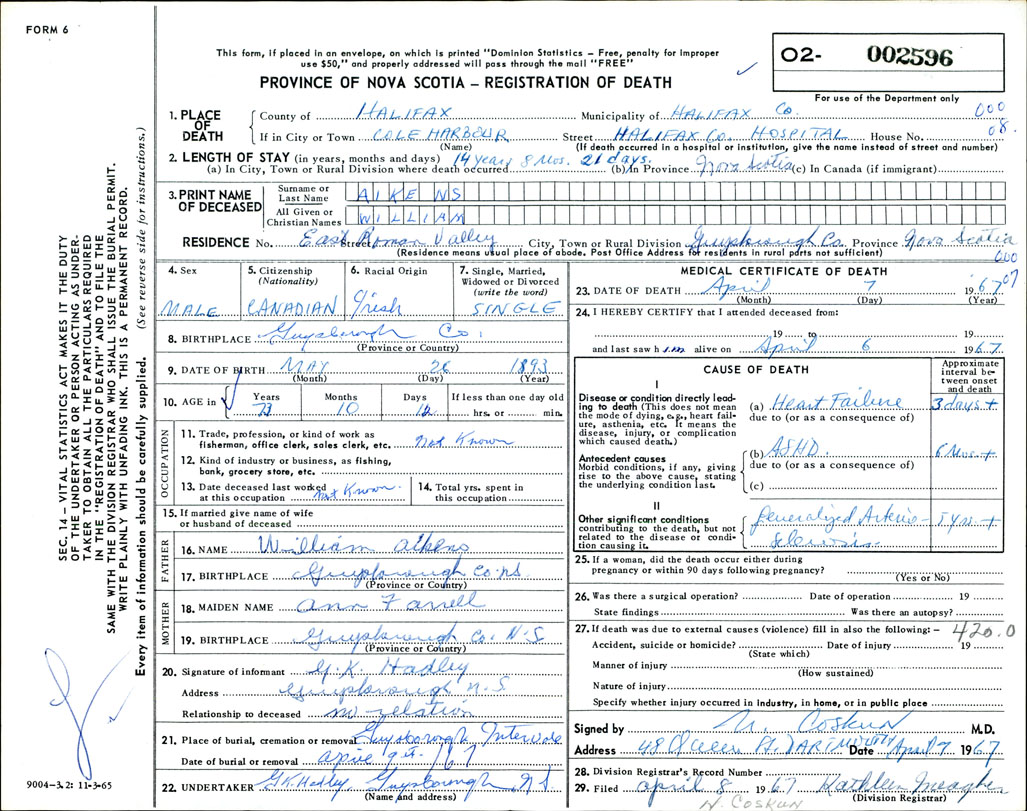 FORM 6
This form, if placed in an envelope, on which is printed "Dominion Statistics – Free, penalty for improper
use $50," and properly addressed will pass through the mail "FREE"
PROVINCE OF NOVA SCOTIA – REGISTRATION OF DEATH
O2- 002596
For use of the Department only
000
08.
1. PLACE OF DEATH
County of HALIFAX Municipality of HALIFAX Co.
If in City or Town COLE HARBOUR Street HALIFAX Co. HOSPITAL House No.
(Name) (If death occurred in a hospital or institution, give the name instead of street and number)
2. LENGTH OF STAY (in years, months and days) 14 years 8 Mos. 21 days.
(a) In City, Town or Rural Division where death occurred (b) In Province Nova Scotia (c) In Canada (if immigrant)
3. PRINT NAME OF DECEASED
Surname or Last Name AIKENS
All Given or Christian Names WILLIAM
RESIDENCE No. East Street Roman Valley City, Town or Rural Division Guysborough Co. Province Nova Scotia
(Residence means usual place of abode. Post Office Address for residents in rural parts not sufficient)
000
07
4. Sex
MALE
5. Citizenship
(Nationality)
CANADIAN
6. Racial Origin
Irish
7. Single, Married,
Widowed or Divorced
(write the word)
SINGLE
8. BIRTHPLACE Guysborough Co.
(Province or Country)
9. DATE OF BIRTH MAY 26 1893
(Month) (Day) (Year)
10. AGE in
Years 73
Months 10
Days 12
If less than one day old
hrs. or min.
OCCUPATION
11. Trade, profession, or kind of work as
fisherman, office clerk, sales clerk, etc. Not Known
12. Kind of industry or business, as fishing,
bank, grocery store, etc.
13. Date deceased last worked
at this occupation Not Known
14. Total yrs. spent in
this occupation
15. If married give name of wife
or husband of deceased
FATHER
16. NAME William Aikens
17. BIRTHPLACE Guysborough Co. NS
(Province or Country)
MOTHER
18. MAIDEN NAME Ann Farrell
19. BIRTHPLACE Guysborough Co. N.S
(Province or Country)
20. Signature of informant G.K. Hadley
Address Guysborough N.S
Relationship to deceased no relation
21. Place of burial, cremation or removal Guysborough Intervale
Date of burial or removal April 9th 67
22. UNDERTAKER G.K. Hadley, Guysborough N S
(Name and address)
MEDICAL CERTIFICATE OF DEATH
23. DATE OF DEATH April 7 1967
(Month) (Day) (Year)
24. I HEREBY CERTIFY that I attended deceased from:
19 to 19
and last saw him alive on April 6 1967
CAUSE OF DEATH
Approximate interval between onset and death
I
Disease or condition directly leading to death (This does not mean the mode of dying, e.g., heart failure, asthenia, etc. It means the disease, injury, or complication which caused death.)
(a) Heart Failure 3 days +
due to (or as a consequence of)
Antecedent causes
Morbid conditions, if any, giving rise to the above cause, stating the underlying condition last.
(b) ASHD. 6 Mos. +
due to (or as a consequence of)
(c)
II
Other significant conditions
contributing to the death, but not related to the disease or condition causing it.
Generalized Arterio- 5 yrs. +
sclerosis.
25. If a woman, did the death occur either during
pregnancy or within 90 days following pregnancy?
(Yes or No)
26. Was there a surgical operation? Date of operation 19
State findings Was there an autopsy?
27. If death was due to external causes (violence) fill in also the following: – 420.0
Accident, suicide or homicide? Date of injury 19
(State which)
Manner of injury
(How sustained)
Nature of injury
Specify whether injury occurred in industry, in home, or in public place
Signed by N. Coskun M.D.
Address 48 Queen St. DARTMOUTH Date April 7 1967
28. Division Registrar's Record Number
29. Filed April 8 1967 Kathleen Meagher
(Division Registrar)
N. COSKUN
SEC. 14 – VITAL STATISTICS ACT MAKES IT THE DUTY
OF THE UNDERTAKER OR PERSON ACTING AS UNDER-
TAKER TO OBTAIN ALL THE PARTICULARS REQUIRED
IN THE "REGISTRATION OF DEATH" AND TO FILE THE
SAME WITH THE DIVISION REGISTRAR WHO SHALL ISSUE THE BURIAL PERMIT.
WRITE PLAINLY WITH UNFADING INK. THIS IS A PERMANENT RECORD.
Every item of information should be carefully supplied. (See reverse side for instructions.)
9004-3.2: 11-3-65